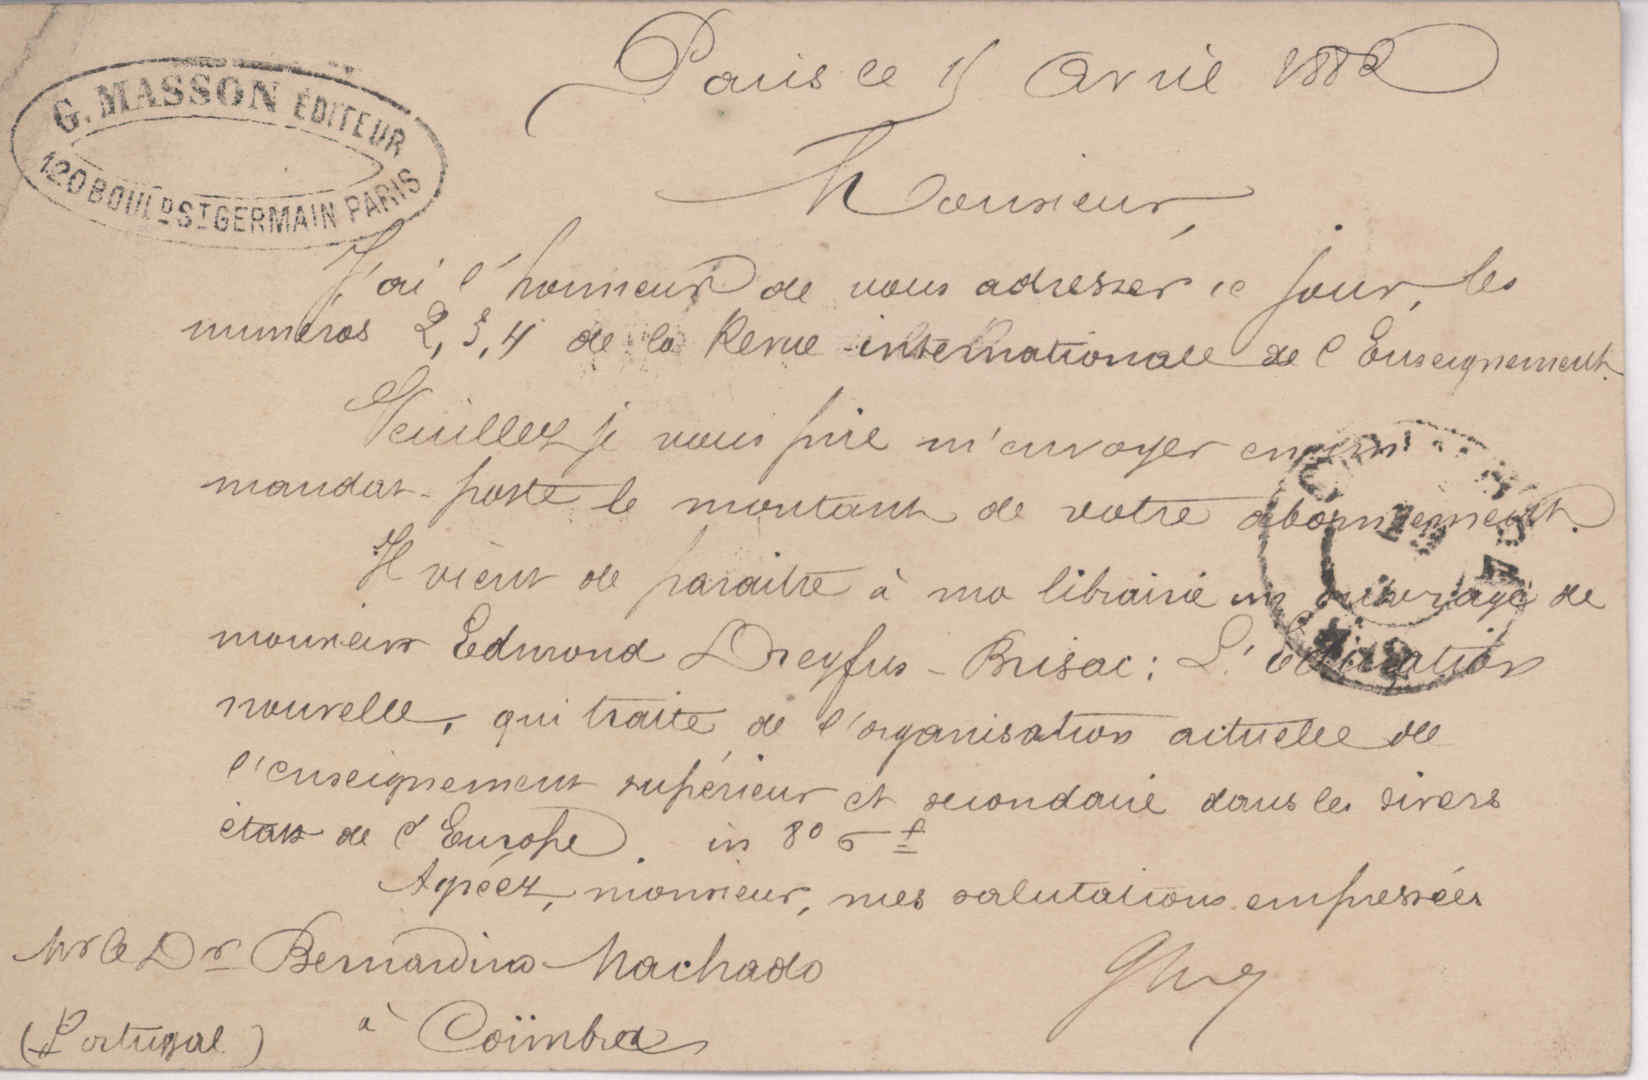 G. MASSON ÉDITEUR
120 BOUL.D ST GERMAIN PARIS
Paris ce 15 Avril 1882
Monsieur,
J'ai l'honneur de vous adresser ce jour, les
numéros 2, 3, 4 de la Revue internationale de l'Enseignement.
Veuillez je vous prie m'envoyer en un
mandat-poste le montant de votre abonnement.
Il vient de paraitre à ma librairie un ouvrage de
monsieur Edmond Dreyfus-Brisac: L'éducation
nouvelle, qui traite de l'organisation actuelle de
l'enseignement supérieur et secondaire dans les divers
états de l'Europe. in 8o 6 f
Agréez, monsieur, mes salutations empressées
Mr le Dr Bernardino Machado
à Coïmbra
(Portugal)